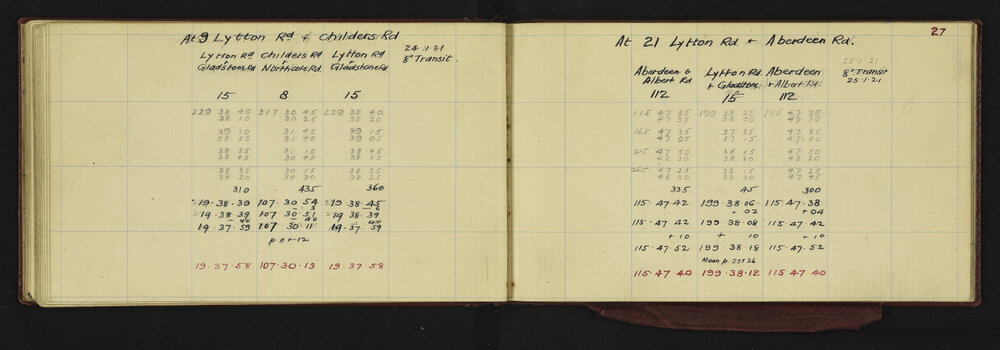 At 9 Lytton Rd & Childers Rd
24.1.21
8" Transit.
Lytton Rd Childers Rd Lytton Rd
Gladstone Rd Northcote Rd Gladstone Rd
15 8 15
229 38 40 317 30 45 229 38 40
38 10 30 25 38 20
39 10 31 45 39 15
38 55 31 40 39 05
38 25 31 10 38 45
38 45 30 45 38 55
38 35 30 15 38 35
38 30 30 30 38 25
310 435 360
219.38.39 107.30.54 219.38.45
219.38.39 107 30.51 219 38 39
19 37.59 107 30.11 19.37.59
p 11 + 12
19.37.58 107.30.13 19.37.58
27
At 21 Lytton Rd + Aberdeen Rd.
25.1.21
8" Transit
25.1.21
Aberdeen & Lytton Rd. Aberdeen
Albert Rd + Gladstone + Albert Rd.
112 15 112
115 47 35 199 38 25 115 47 35
47 35 38 00 47 30
165 47 35 37 35 47 35
47 05 37 15 47 00
215 47 50 38 15 47 50
48 30 38 30 48 20
265 47 25 38 15 47 25
48 00 38 30 47 45
335 45 300
115.47.42 199.38 06 115.47.38
+ 02 + 04
115.47.42 199 38 08 115.47.42
+ 10 + 10 + 10
115.47.52 199.38.18 115.47.52
Mean p. 25 + 26
115.47.40 199.38.12 115.47.40